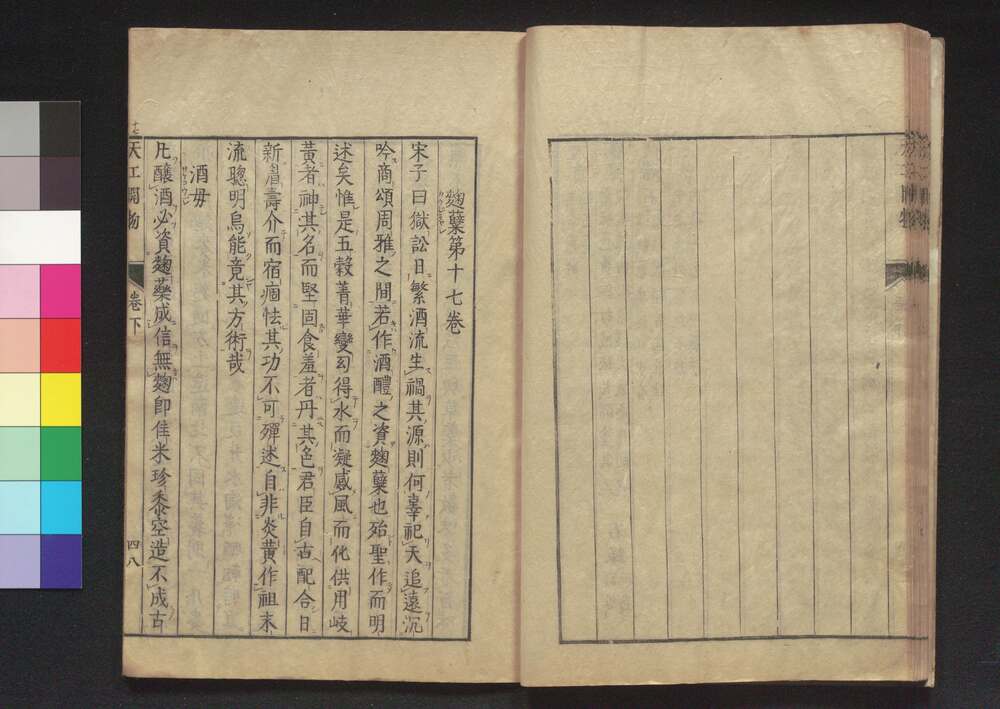 麴櫱第十七卷
宋子曰獄訟日繁酒流生禍其源則何辜祀天追遠沉
吟商頌周雅之間若作酒醴之資麴櫱也殆聖作而明
述矣惟是五穀菁華變幻得水而凝感風而化供用岐
黃者神其名而堅固食羞者丹其色君臣自古配合日
新眉壽介而宿痼怯其功不可殫述自非炎黃作祖末
流聰明烏能竟其方術哉
酒毋
凡釀酒必資麴藥成信無麴即佳米珍黍空造不成古
十七
天工開物
卷下
四八